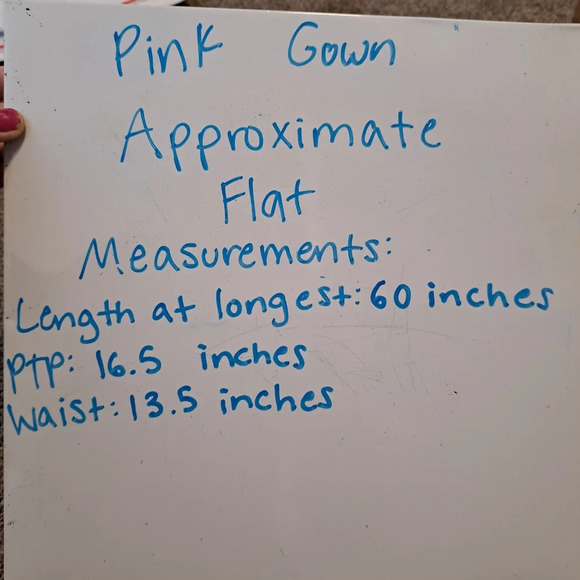 Pink Gown
Approximate
Flat
Measurements:
Length at longest: 60 inches
PTP: 16.5 inches
Waist: 13.5 inches